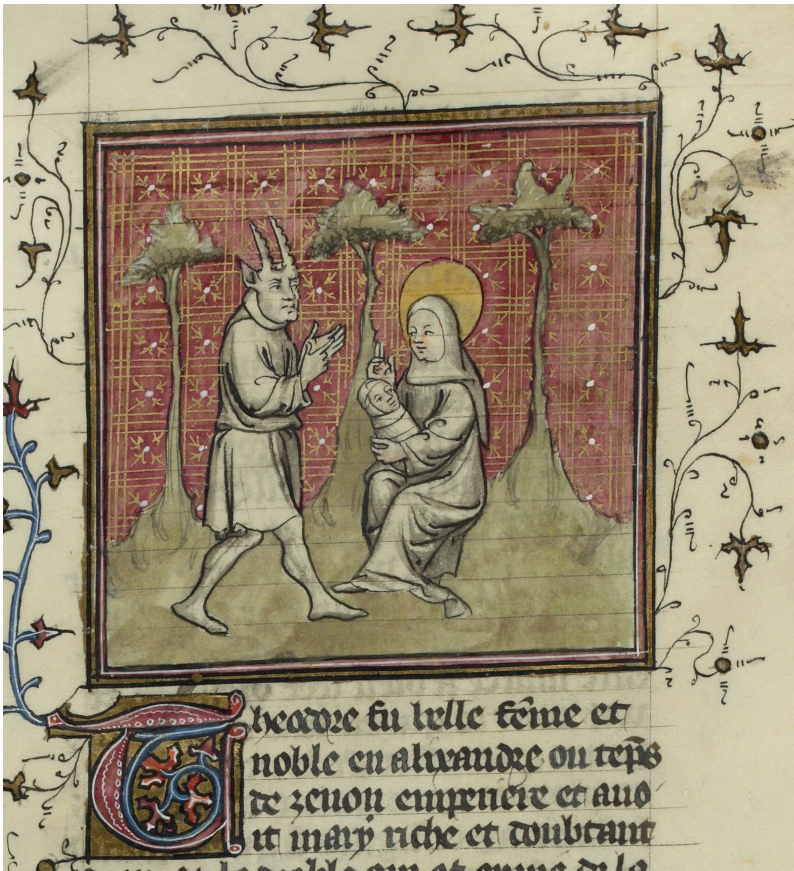 Theodore fu belle fēme et
noble en alixandre ou tēps
de zenon emperiere et auo
it mary riche et doubtant